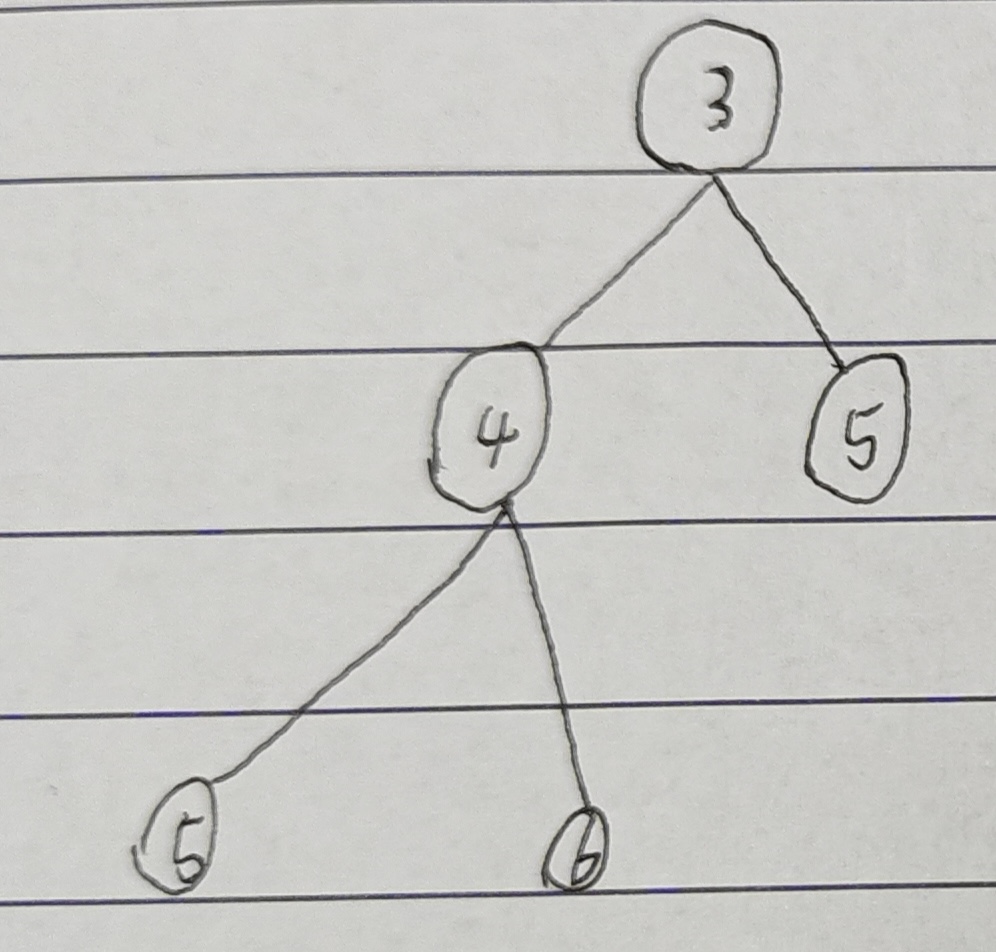 3
4 5
5 6